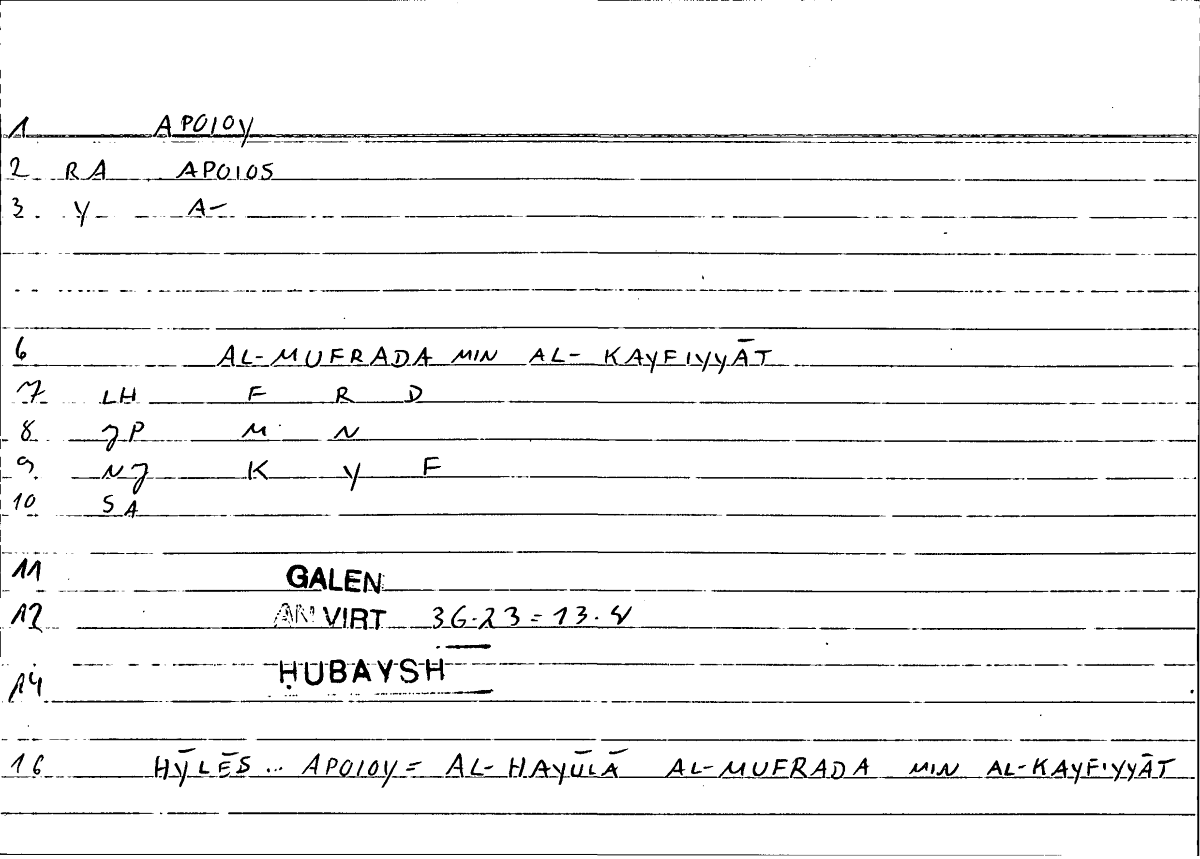 1 APOIOY
2 RA APOIOS
3. Y A-
6 AL-MUFRADA MIN AL-KAYFIYYĀT
7 LH F R D
8 JP M N
9. NJ K Y F
10 SA
11 GALEN
12 AN VIRT 36.23 = 13.4
14 ḤUBAYSH
16 HȲLĒS ... APOIOY = AL-HAYŪLĀ AL-MUFRADA MIN AL-KAYFIYYĀT